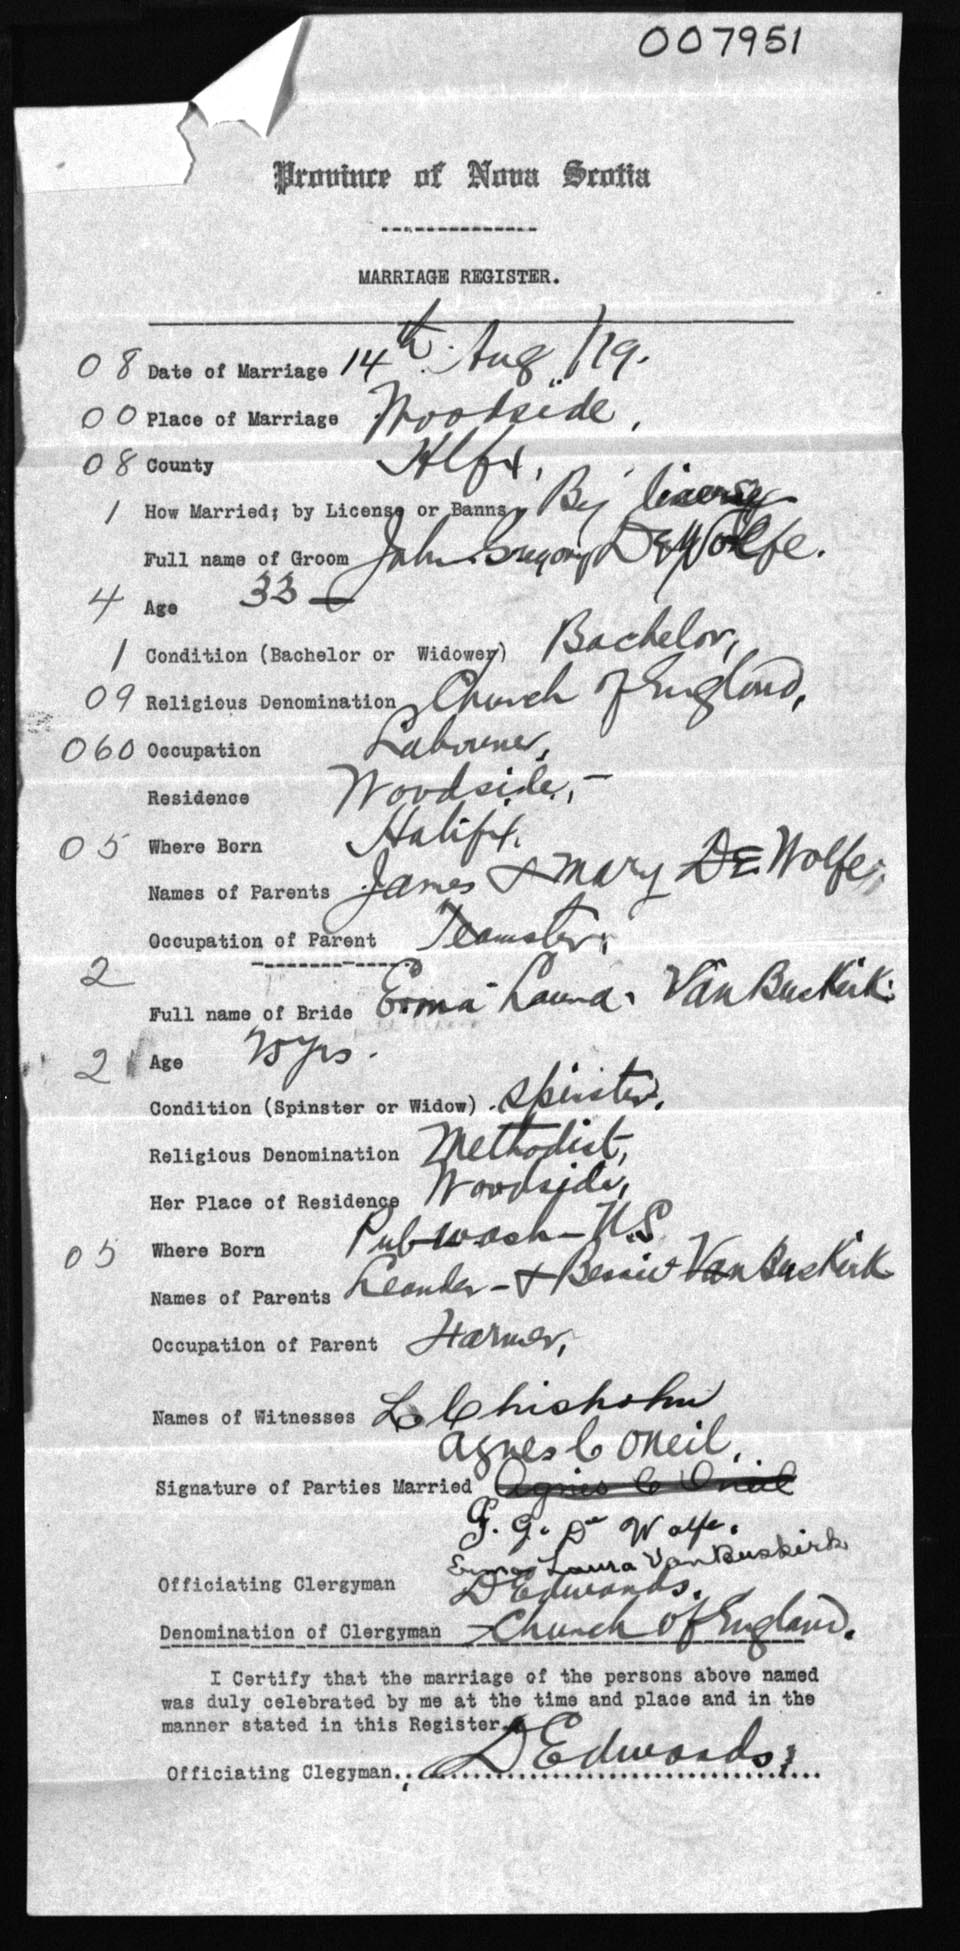 007951
Province of Nova Scotia
MARRIAGE REGISTER.
08 Date of Marriage 14th. Aug /19.
00 Place of Marriage Woodside,
08 County Hlfx,
1 How Married; by License or Banns, By license
Full name of Groom John Gregory DEWolfe.
4 Age 33
1 Condition (Bachelor or Widower) Bachelor,
09 Religious Denomination Church of England,
060 Occupation Labourer,
Residence Woodside, -
05 Where Born Halifx.
Names of Parents James & Mary DE Wolfe,
Occupation of Parent Teamster,
2
Full name of Bride Erma Laura Van BusKirk.
2 Age yrs.
Condition (Spinster or Widow) Spinster,
Religious Denomination Methodist,
Her Place of Residence Woodside,
05 Where Born Pubwash - N.S
Names of Parents Leander - & Bessie VanBusKirk
Occupation of Parent Farmer,
Names of Witnesses L Chisholm
Agnes C ONeil,
Signature of Parties Married Agnes C Oneil
J. G. De Wolfe.
Erma Laura VanBuskirk
Officiating Clergyman D Edwards.
Denomination of Clergyman Church of England.
I Certify that the marriage of the persons above named
was duly celebrated by me at the time and place and in the
manner stated in this Register.
Officiating Clegyman.. D Edwards,